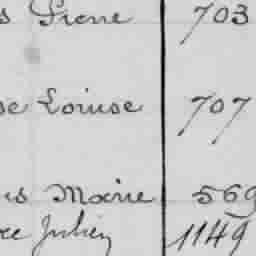 s Pierre 703
se Louise 707
es Marie 569
re Julien 1149